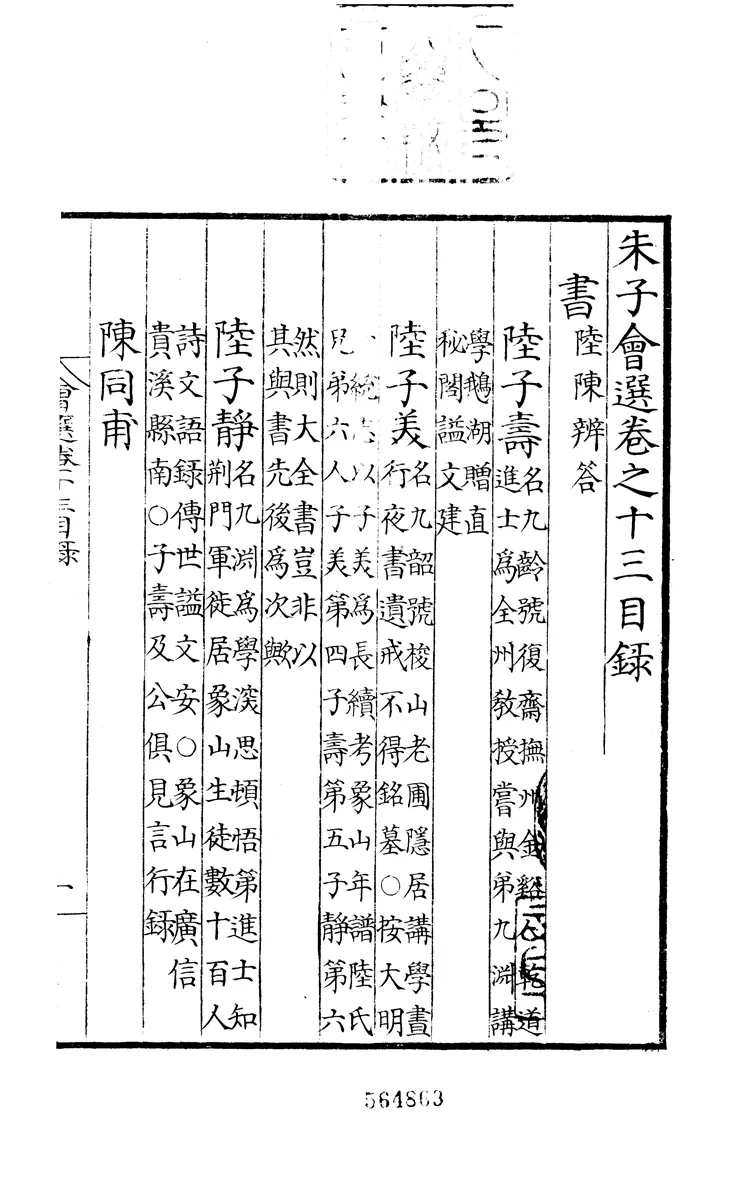 朱子會選卷之十三目録
書
陸陳辨答
陸子壽
名九齡號復齋撫州金谿人乾道
進士爲全州敎授嘗與弟九淵講
學鵝湖贈直
秘閣謚文建
陸子美
名九韶號梭山老圃隱居講學晝
行夜書遺戒不得銘墓○按大明
一統志以子美爲長續考象山年譜陸氏
兄弟六人子美第四子壽第五子靜第六
然則大全書豈非以
其與書先後爲次歟
陸子靜
名九淵爲學深思頓悟第進士知
荆門軍徙居象山生徒數十百人
詩文語録傳世謚文安○象山在廣信
貴溪縣南○子壽及公俱見言行録
陳同甫
會選卷十三目録
一
564863